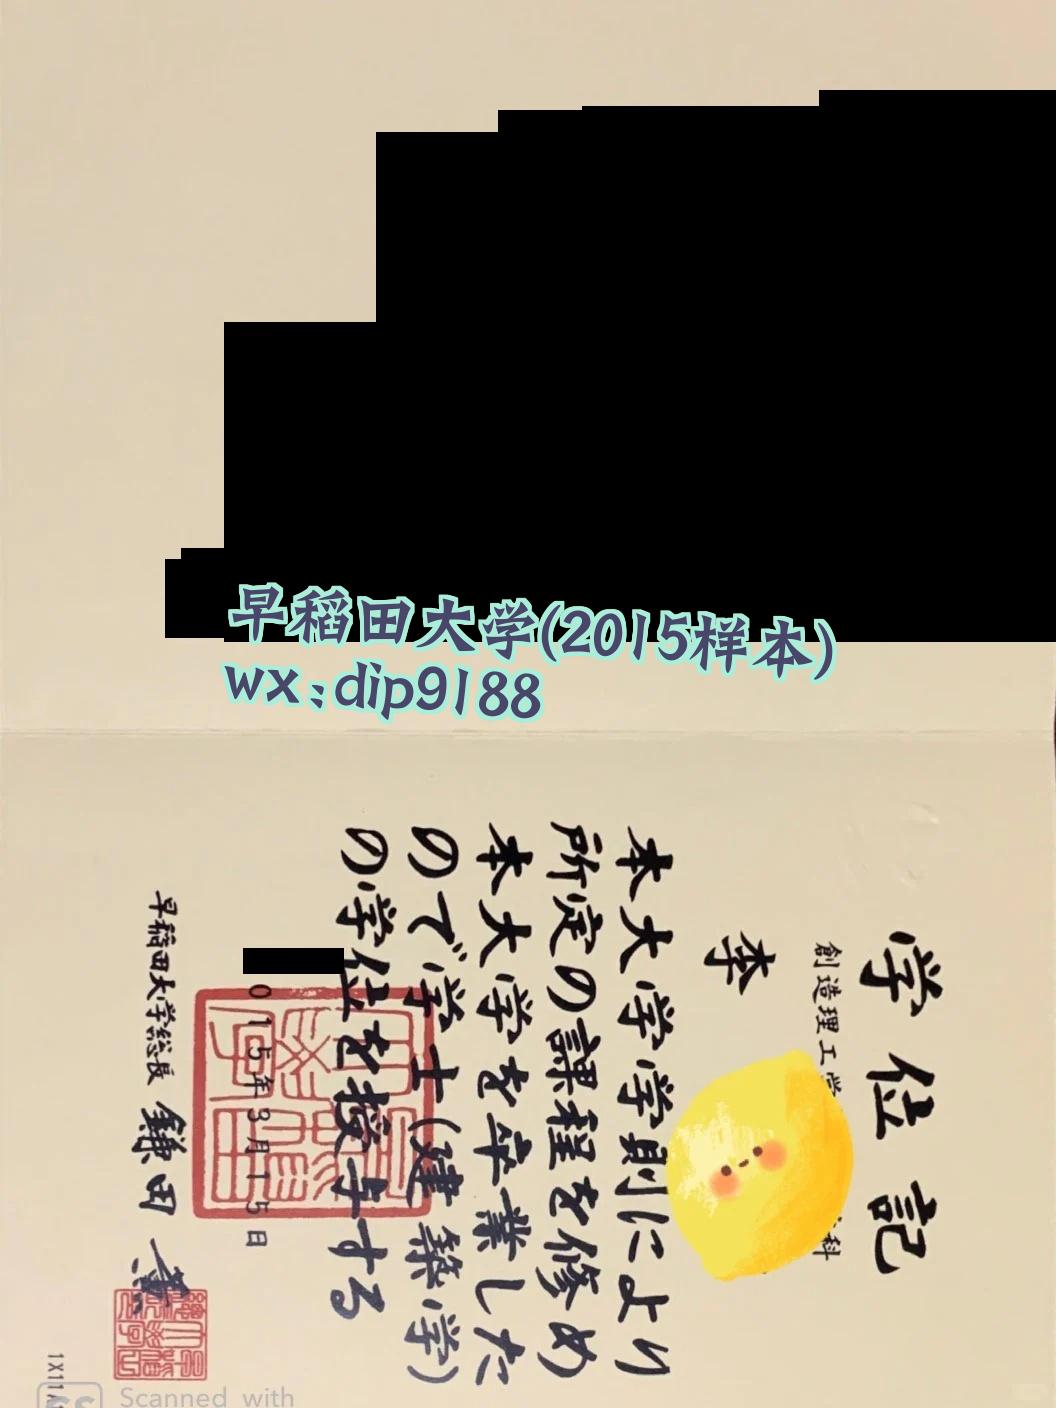 早稻田大学(2015样本)
wx:dip9188
学位記
創造理工学
科
李
本大学学則により
所定の課程を修め
本大学を卒業した
ので学士(建築学)
の学位を授与する
015年3月15日
早稲田大学総長 鎌田 薫
1X11A
Scanned with